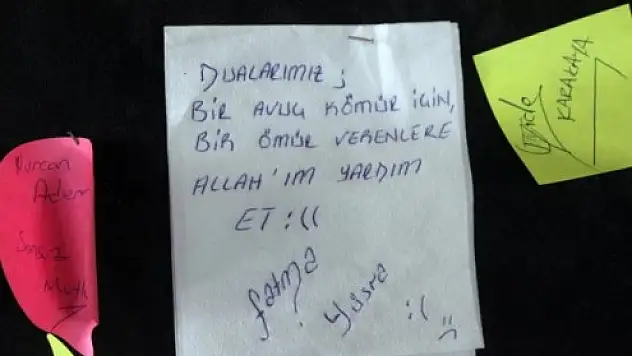 DUALARIMIZ ;
BİR AVUÇ KÖMÜR İÇİN,
BİR ÖMÜR VERENLERE
ALLAH'IM YARDIM
ET :((
fatma
Yüsra :(
Adem
KARAKAYA